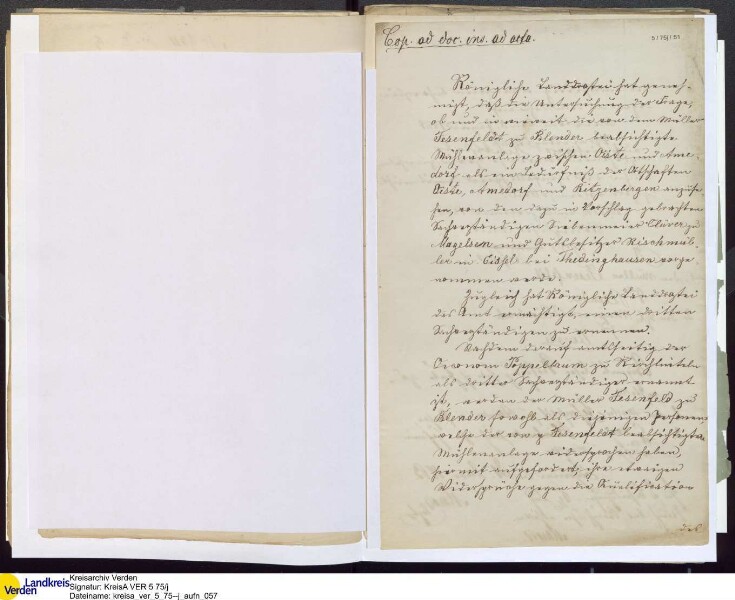 Cop. ad doc. ins. ad acta.
5/75j/51
Königliche Landdrostei hat geneh-
migt, daß die Untersuchung der Frage,
ob und in wieweit die von dem Müller
Tesenfeldt zu Blender beabsichtigte
Mühlenanlage zwischen Oiste und Ame-
dorf als ein Bedürfniß der Ortschaften
Oiste, Amedorf und Ritzenbergen anzuse
hen, von den dazu in Vorschlag gebrachten
Sachverständigen Siebenmeier Clüver zu
Magelsen und Gutsbesitzer Nischmül-
ler in Eissel bei Thedinghausen vorge
nommen werde.
Zugleich hat Königliche Landdrostei
das Amt ermächtigt, einen dritten
Sachverständigen zu ernennen.
Nachdem darauf amtsseitig der
Oeconom Poppelbaum zu Kirchlinteln
als dritter Sachverständiger ernannt
ist, werden der Müller Tesenfeld zu
Blender sowohl als diejenigen Personen,
welche der von p Tesenfeldt beabsichtigten
Mühlenanlage widersprochen haben,
hiermit aufgefordert, ihre etwaigen
Widersprüche gegen die Qualification
der
Landkreis
Verden
Kreisarchiv Verden
Signatur: KreisA VER 5 75/j
Dateiname: kreisa_ver_5_75--j_aufn_057